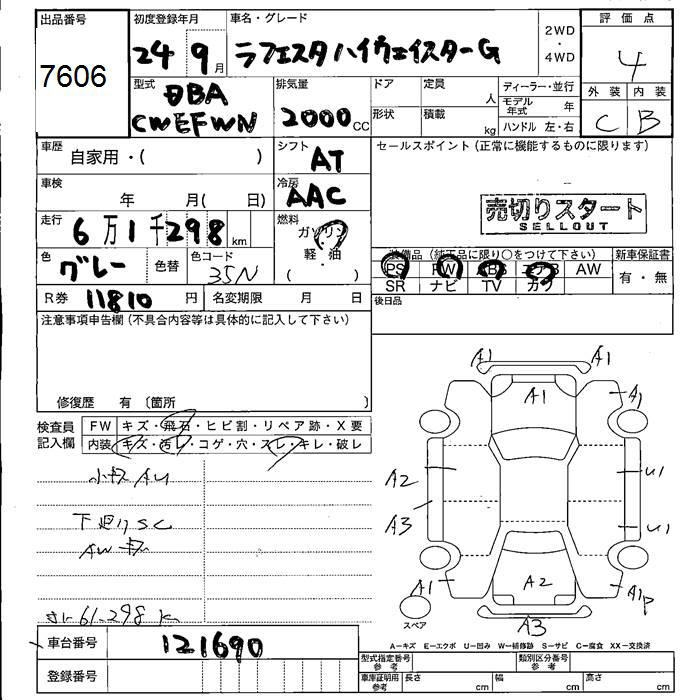 出品番号
7606
初度登録年月
24 9月
車名・グレード
ラフェスタハイウェイスターG
2WD
・
4WD
評価点
4
外装 内装
C B
型式
DBA
CWEFWN
排気量
2000cc
ドア
形状
定員
人
積載
kg
ディーラー・並行
モデル年式 年
ハンドル 左・右
車歴
自家用・( )
シフト
AT
セールスポイント(正常に機能するものに限ります)
車検
年 月( 日)
冷房
AAC
売切りスタート
SELLOUT
走行
6万1千298km
燃料
ガソリン
軽・油
( )
色
グレー
色替
色コード
35N
装備品(純正品に限り〇をつけて下さい)
PS PW ABS エアB AW
SR ナビ TV カワ
新車保証書
有・無
R券 11810円
名変期限 月 日
後日品
注意事項申告欄(不具合内容等は具体的に記入して下さい)
修復歴 有 〔箇所 〕
検査員
記入欄
FW キズ・飛石・ヒビ割・リペア跡・X要
内装 キズ・汚レ・コゲ・穴・スレ・キレ・破レ
小キズ AU
下廻りSC
AWキズ
61.298 K
A1 A1
A1
A1
A2
U1
A3
U1
A1
A2
A1P
スペア
A3
A=キズ E=エクボ U=凹み W=補修跡 S=サビ C=腐食 XX=交換済
車台番号
121690
登録番号
型式指定番号
参考
類別区分番号
参考
車庫証明用
参考
長さ cm
幅 cm
高さ cm